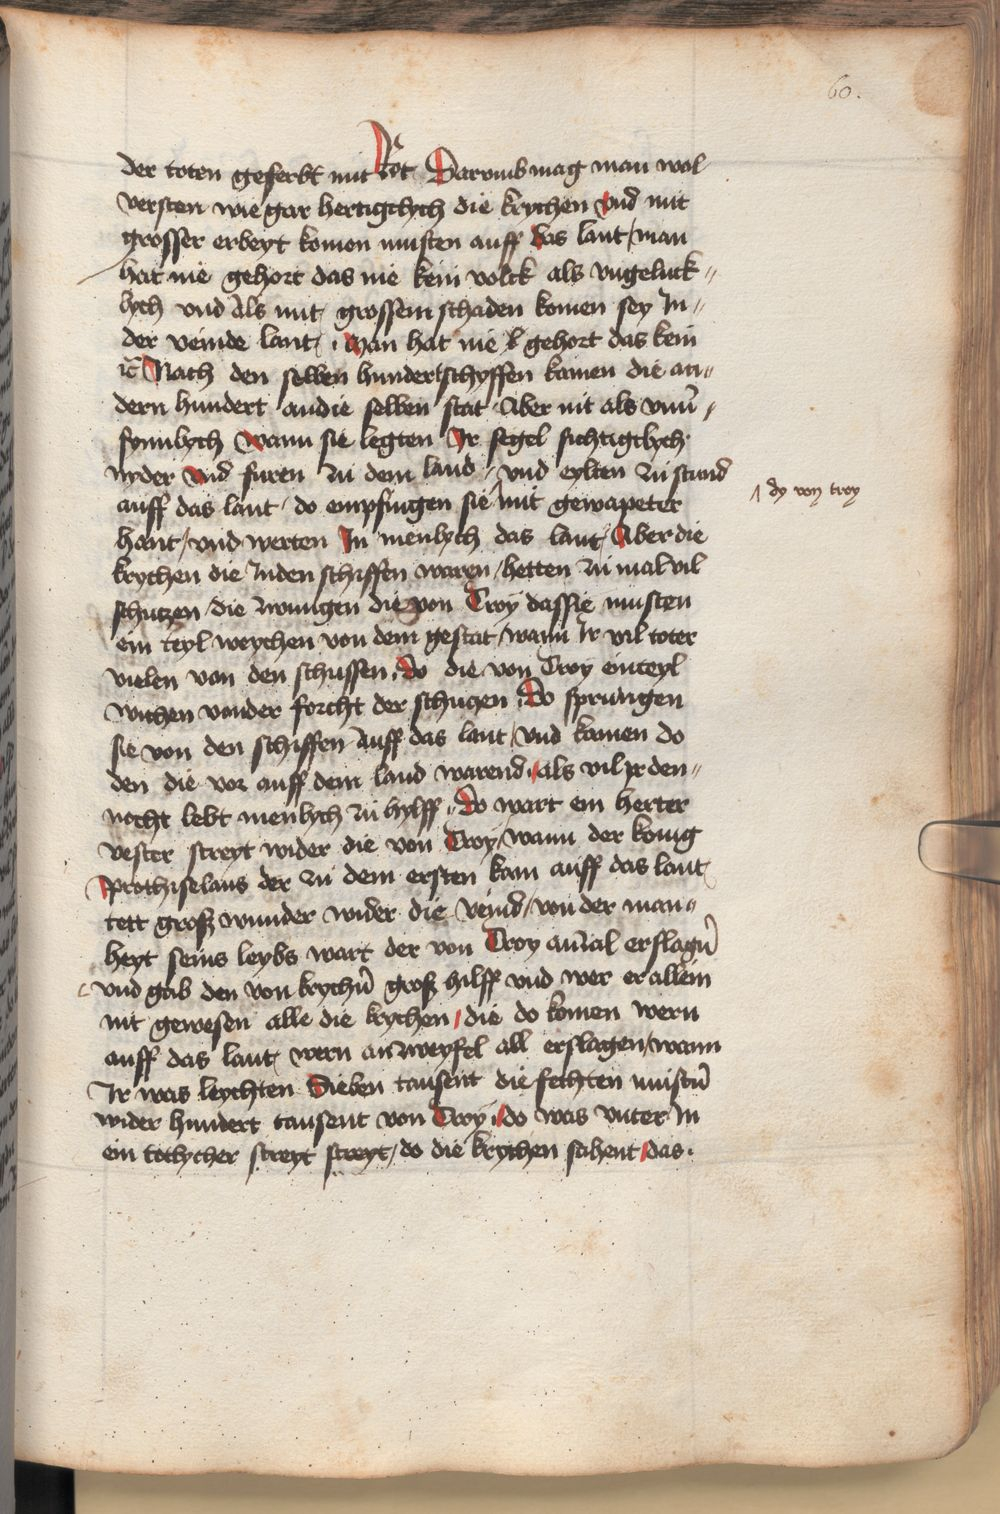 60.
der toten geferbt mit Rot Darumb mag man wol
versten wie gar hertigchych die krychen vnd mit
grosser erbeyt komen musten auff das lant / man
hat nie gehort das nie kein volck als vngeluck"
lych vnd als mit grossem schaden komen sey In"
der veinde lant / Man hat nie gehort das kein
Nach den selben hundertschyffen kamen die an"
dern hundert an die selben stat Aber nit als vnu
synnblych Wann sie legten Ir segel sichtigklych
nyder Vnd furen zu dem land / vnd eylten zu stund
auff das lant / do empfingen sie mit gewapeter
dy von troy
hant / vnd werten In menlych das lant / Aber die
krychen die In den schiffen waren / hetten zu mal vil
schutzen / die zwungen die von Troy das sie musten
ein teyl weychen von dem gestat / wann Ir vil toter
vielen von den schussen / do die von Troy ein teyl
wichen von der forcht der schutzen / Do sprungen
sie von den schiffen auff das lant / vnd kamen do
den die vor auff dem land warend / als vil yr den"
nocht lebt menlych zu hylff / Do wart ein herter
vester streyt wider die von Troy / wann der konig
Prothiselaus der zu dem ersten kam auff das lant
tett groß wunder wider die veind / von der man"
heyt seins leybs wart der von Troy an zal erslagn̄
vnd gab den von krychn̄ groß hilff vnd wer er allein
nit gewesen alle die krychen / die do komen wern
auff das lant wern an zweyfel all erslagen / wann
Ir was leychten Sieben tausent die fechten mustn̄
wider hundert tausent von Troy / do was vnter In
ein totlycher streyt streyt / do die krychen sahent / das